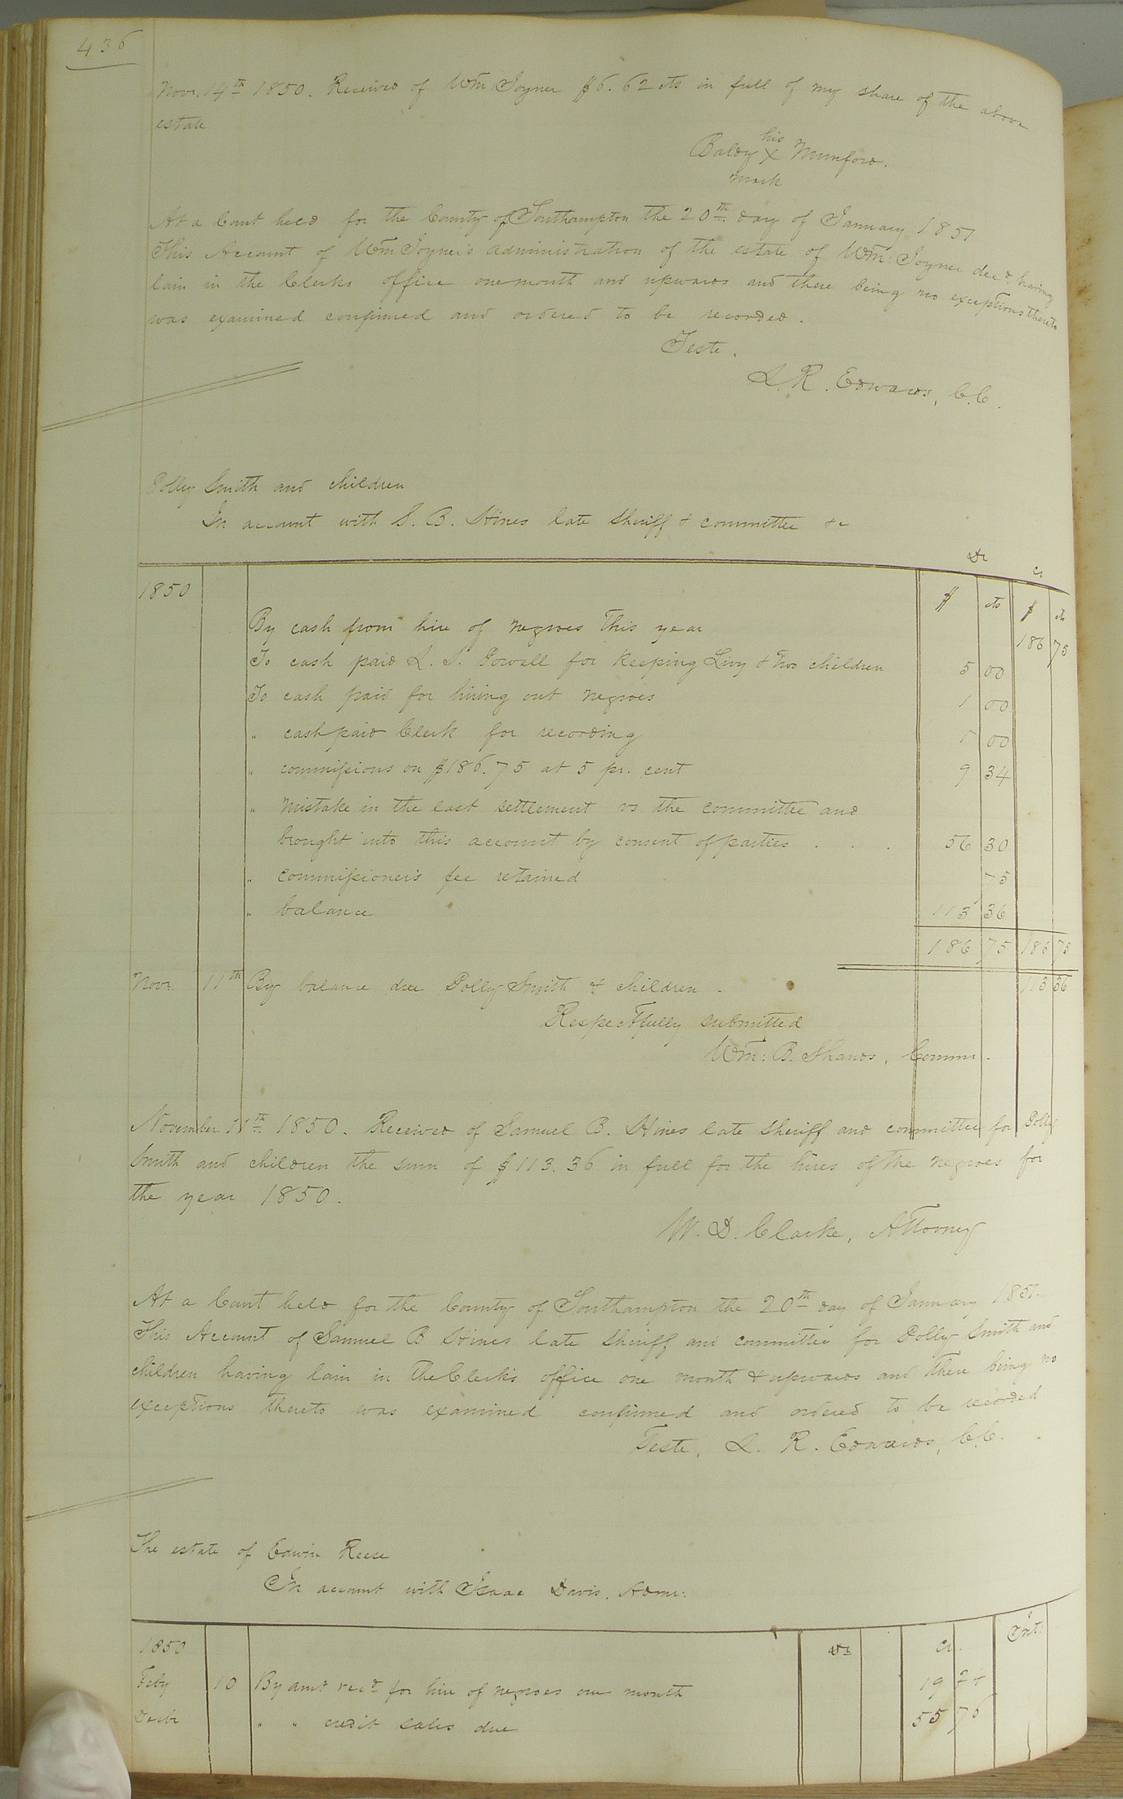 436
Novr. 14th 1850. Received of Wm Joyner $6.62 cts in full of my share of the above
estate
his
Baldy X Mumford.
mark
At a Court held for the County of Southampton the 20th day of January 1851
This Account of Wm Joyner's administration of the estate of Wm Joyner decd having
lain in the Clerks office one month and upwards and there being no exceptions thereto
was examined confirmed and ordered to be recorded.
Teste.
L. R. Edwards, C.C.
Polly Smith and children
In account with S. B. Hines late Sheriff & committee &c
Dr Cr
1850 $ cts $ cts
By cash from hire of negroes this year 186 75
To cash paid L. S. Powell for keeping Livy & two children 5 00
To cash paid for hiring out negroes 1 00
" cash paid Clerk for recording 1 00
" commissions on $186.75 at 5 pr. cent 9 34
" mistake in the last settlement vs the committee and
brought into this account by consent of parties . . . 56 30
" commissioner's fee retained 75
" balance 113 36
186 75 186 75
Novr. 11th By balance due Polly Smith & children . 113 36
Respectfully submitted
Wm. B. Shands, Commr.
November 11th 1850. Received of Samuel B. Hines late Sheriff and committee for Polly
Smith and children the sum of $113.36 in full for the hires of the negroes for
the year 1850.
W. D. Clarke, Attorney
At a Court held for the County of Southampton the 20th day of January 1851
This Account of Samuel B Hines late Sheriff and committee for Polly Smith and
children having lain in the Clerk's office one month & upwards and there being no
exceptions thereto was examined confirmed and ordered to be recorded
Teste, L. R. Edwards, C.C.
The estate of Edwin Reese
In account with Isaac Davis, Admr.
1850 Dr Cr. Int
Feby 10 By amt recd for hire of negroes one month 19
Decbr " " credit sales due 55 76